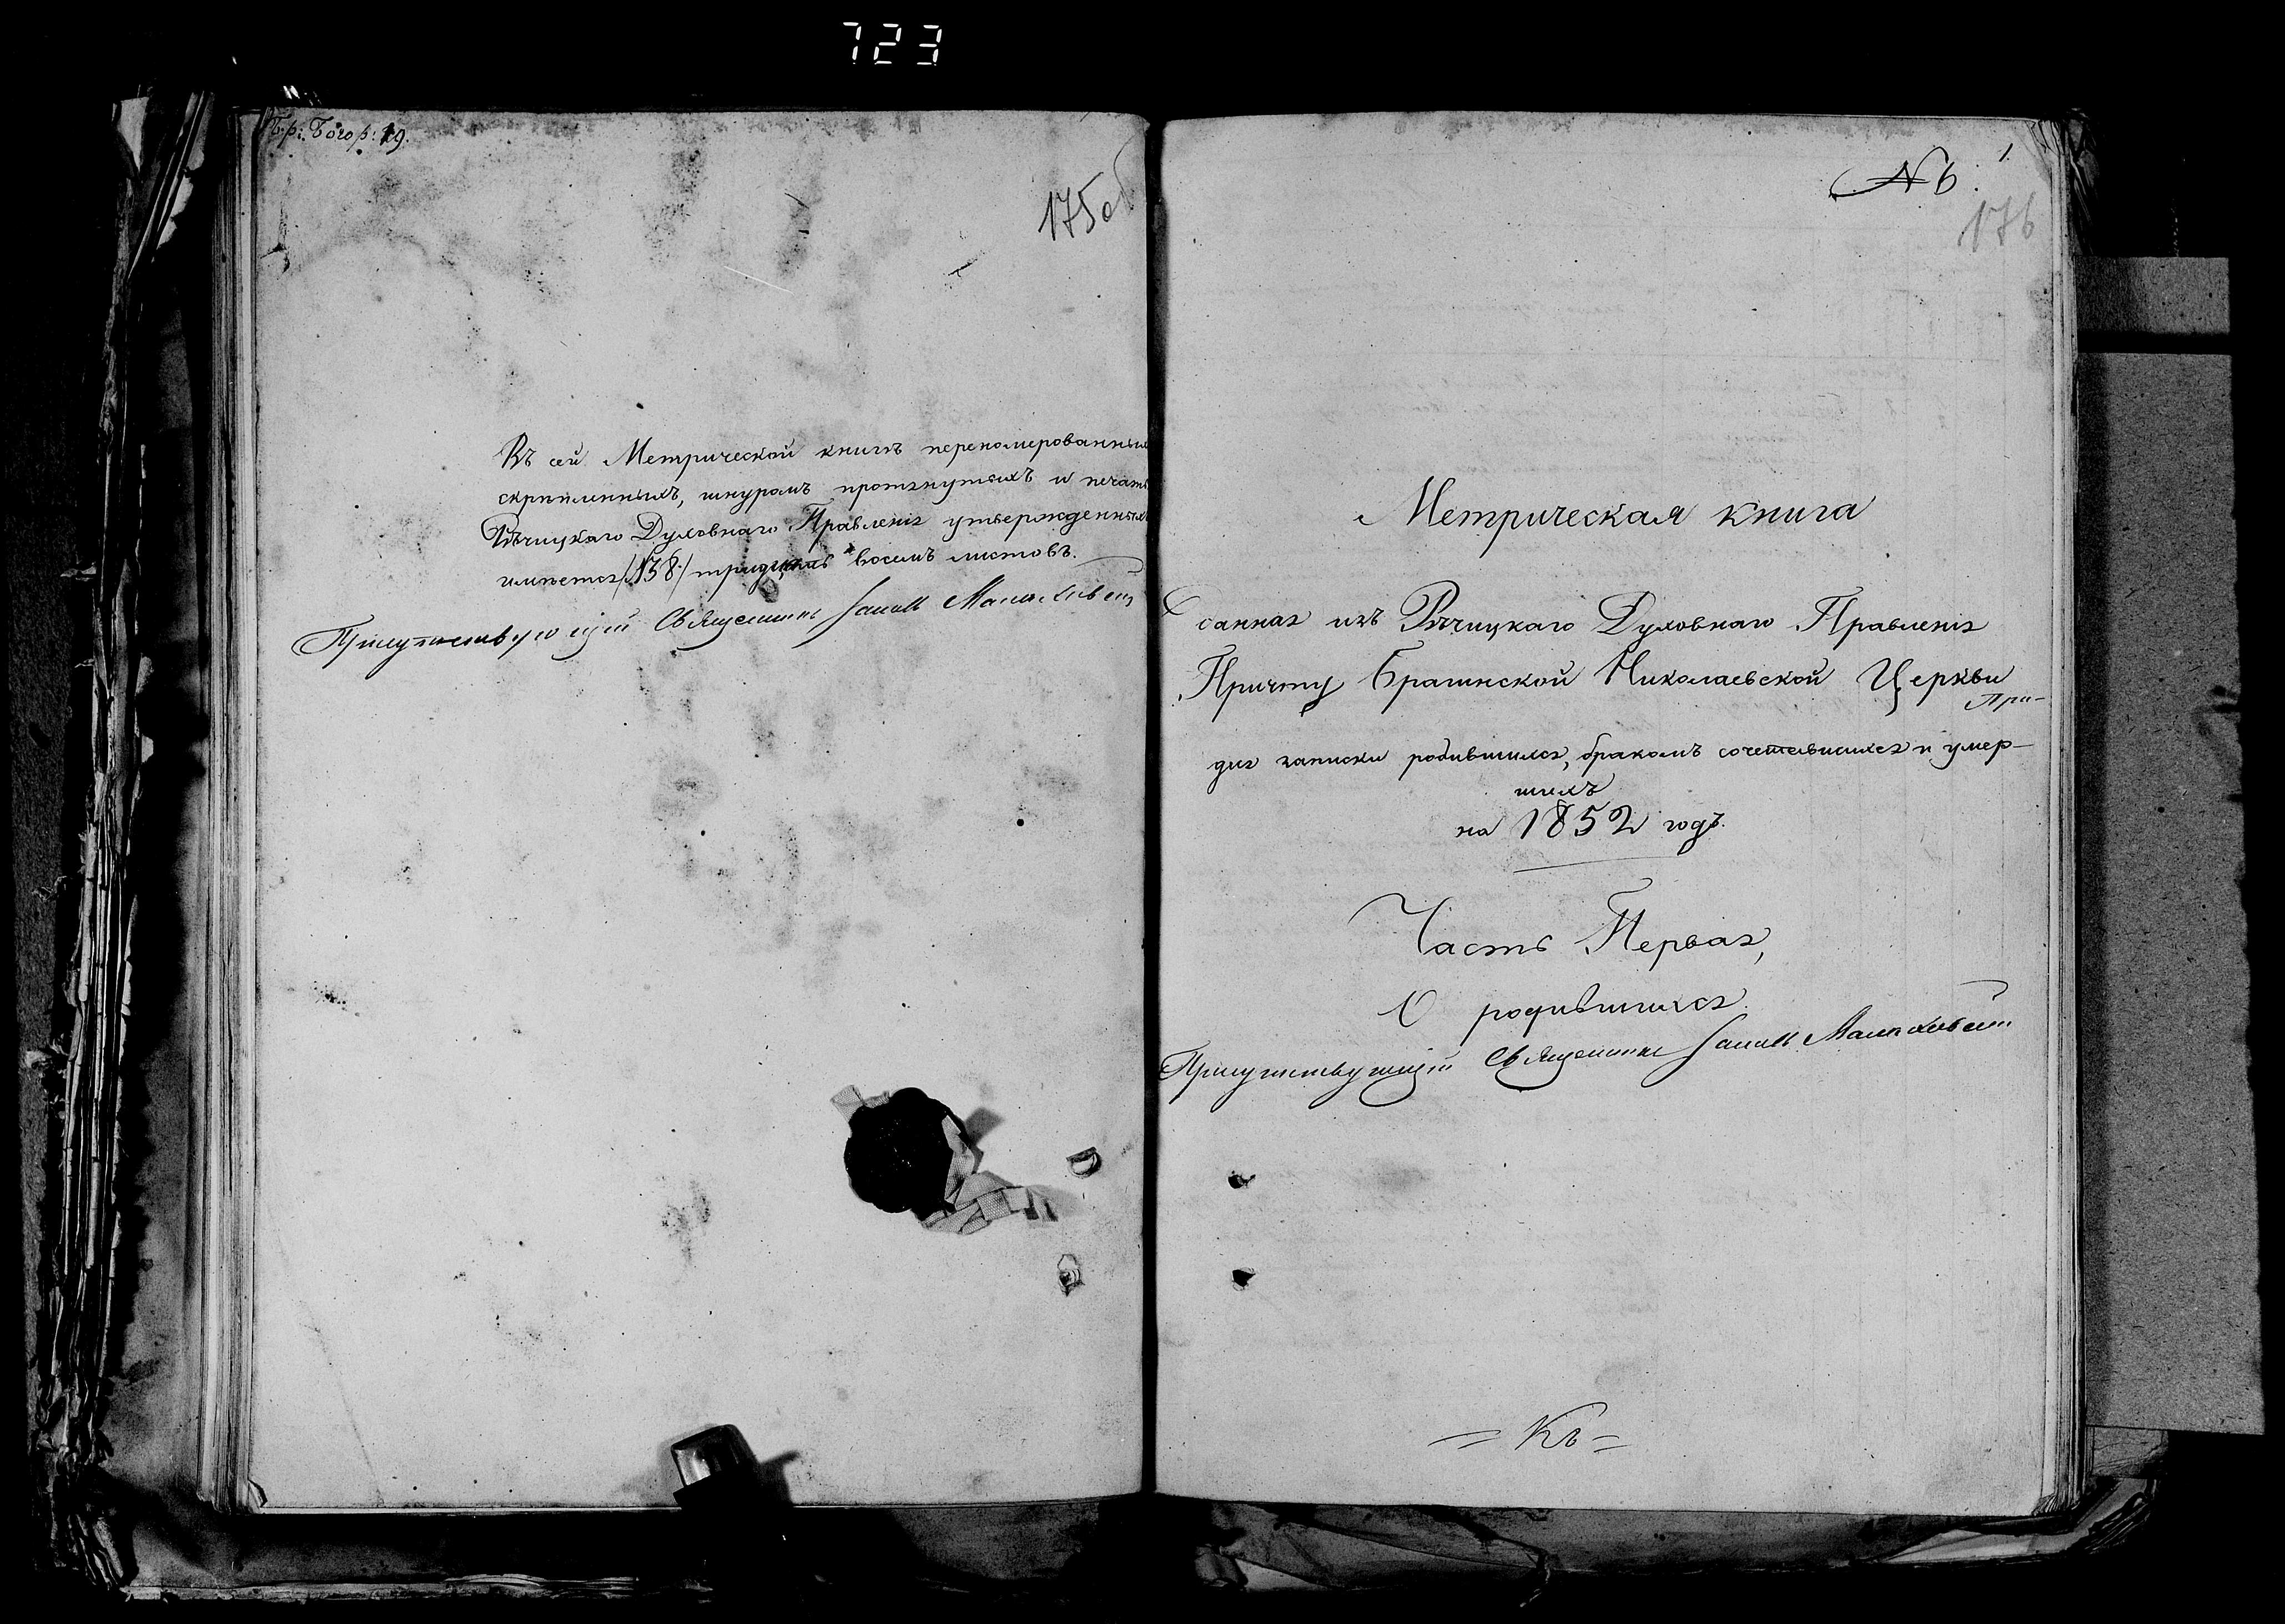 723
Бр: Богор: 19.
175об
Въ сей Метрической книгѣ перенომерованныхъ
скрѣпленныхъ, шнуромъ протянутыхъ и печатью
Рѣчицкаго Духовнаго Правленія утвержденныхъ
имѣется /:38:/ тридцать восемъ листовъ.
Присутствующій Священникъ
№ 6. 1.
176
Метрическая книга
Данная изъ Рѣчицкаго Духовнаго Правленія
Причту Брагинской Николаевской Церкви
При-
для записки родившихся, бракомъ сочетавшихся и умер-
шихъ
на 1852 годъ.
Часть Первая,
О родившихся.
Присутствующій Священникъ